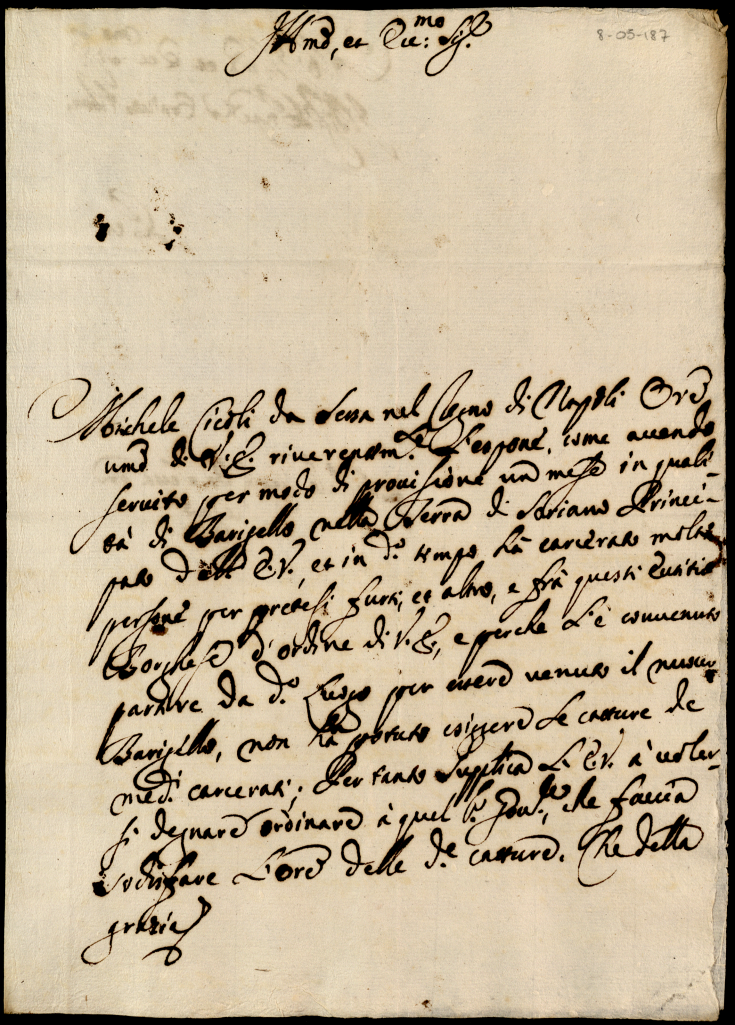 Ill.mo, et Ecc.mo Sig.r
8-05-187
Michele Cicoli da Sessa nel Regno di Napoli Ore
umo di V. E. riverentem.te l'espone, come avendo
servito per modo di provisione un mese in quali-
tà di Barigello nella Terra di Soriano Princi-
pato dell' E. V., et in d.o tempo hà carcerato molte
persone per pretesi furti, et altro, e frà questi
Borghese d'ordine di V. E., e perche l'è convenuto
partire da d.o Luogo per essere venuto il nuovo
Barigello, non hà potuto esiggere le catture de
med.i carcerati; Per tanto supplica l'E. V. à voler-
si degnare ordinare à quel S.r Gov.re, che faccia
sodisfare l'Ore delle d.e catture. Che della
grazia